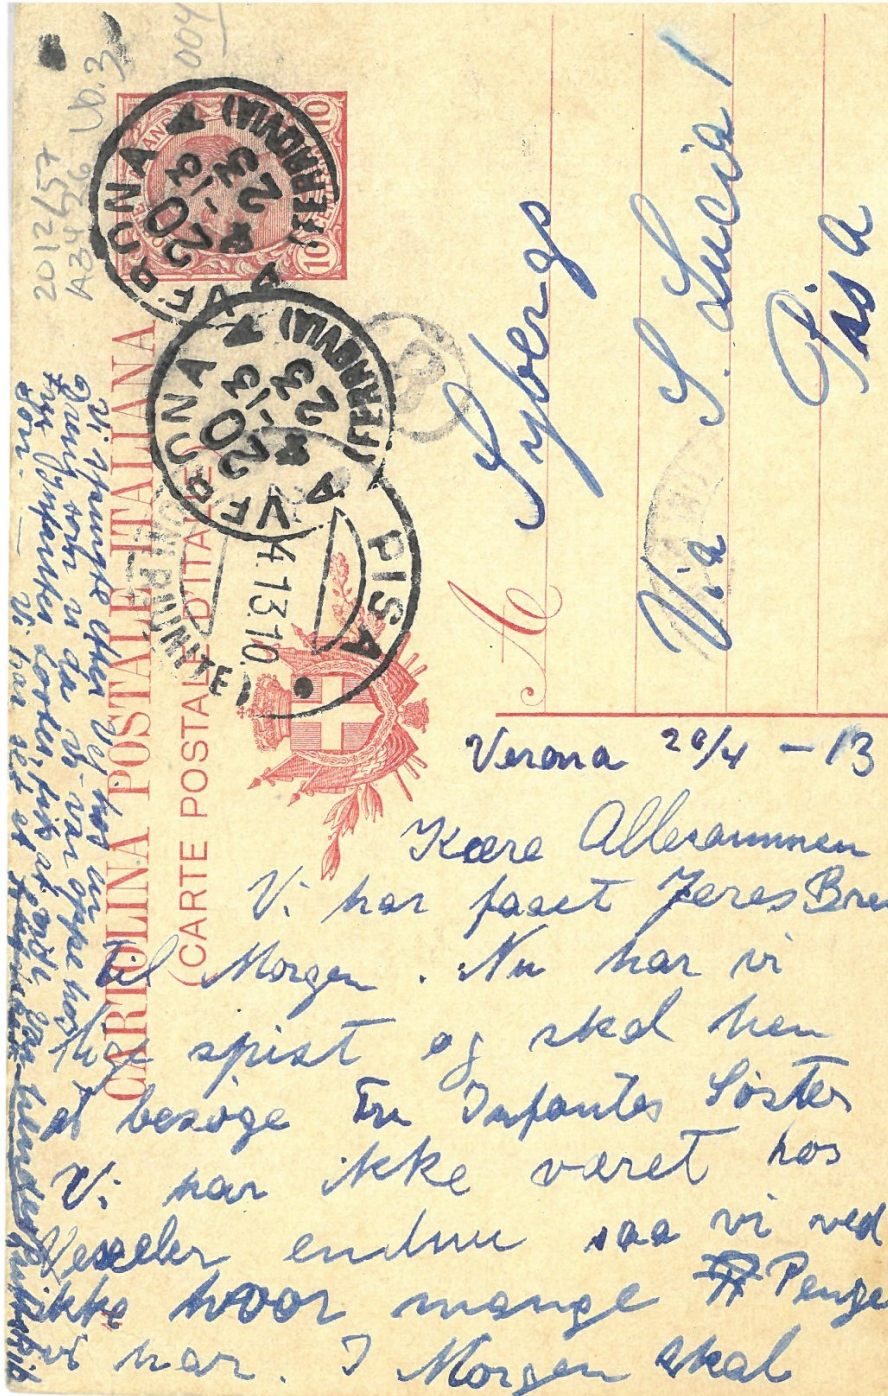 2012/57
A3426 Ub.3
004
CARTOLINA POSTALE ITALIANA
(CARTE POSTALE D'ITALIE)
10
10
VERONA
(FERROVIA)
20
4-13
23
A
VERONA
(FERROVIA)
20
4-13
23
A
PISA
4.13.10
8
A
Sybergs
Via S. Lucia 1
Pisa
Verona 20/4 - 13
Kære Allesammen
Vi har faaet Jeres Brev
til Morgen. Nu har vi
lige spist og skal hen
at besøge Fru Infantes Søster
Vi har ikke været hos
Veksler endnu saa vi ved
ikke hvor mange Penge
vi har. I Morgen skal
Vi spurgte efter Vej hos en
Dreng som vi da vi var oppe hos
Frue Infantes Søster, fik at vide var hendes
Søn. — Vi har set et